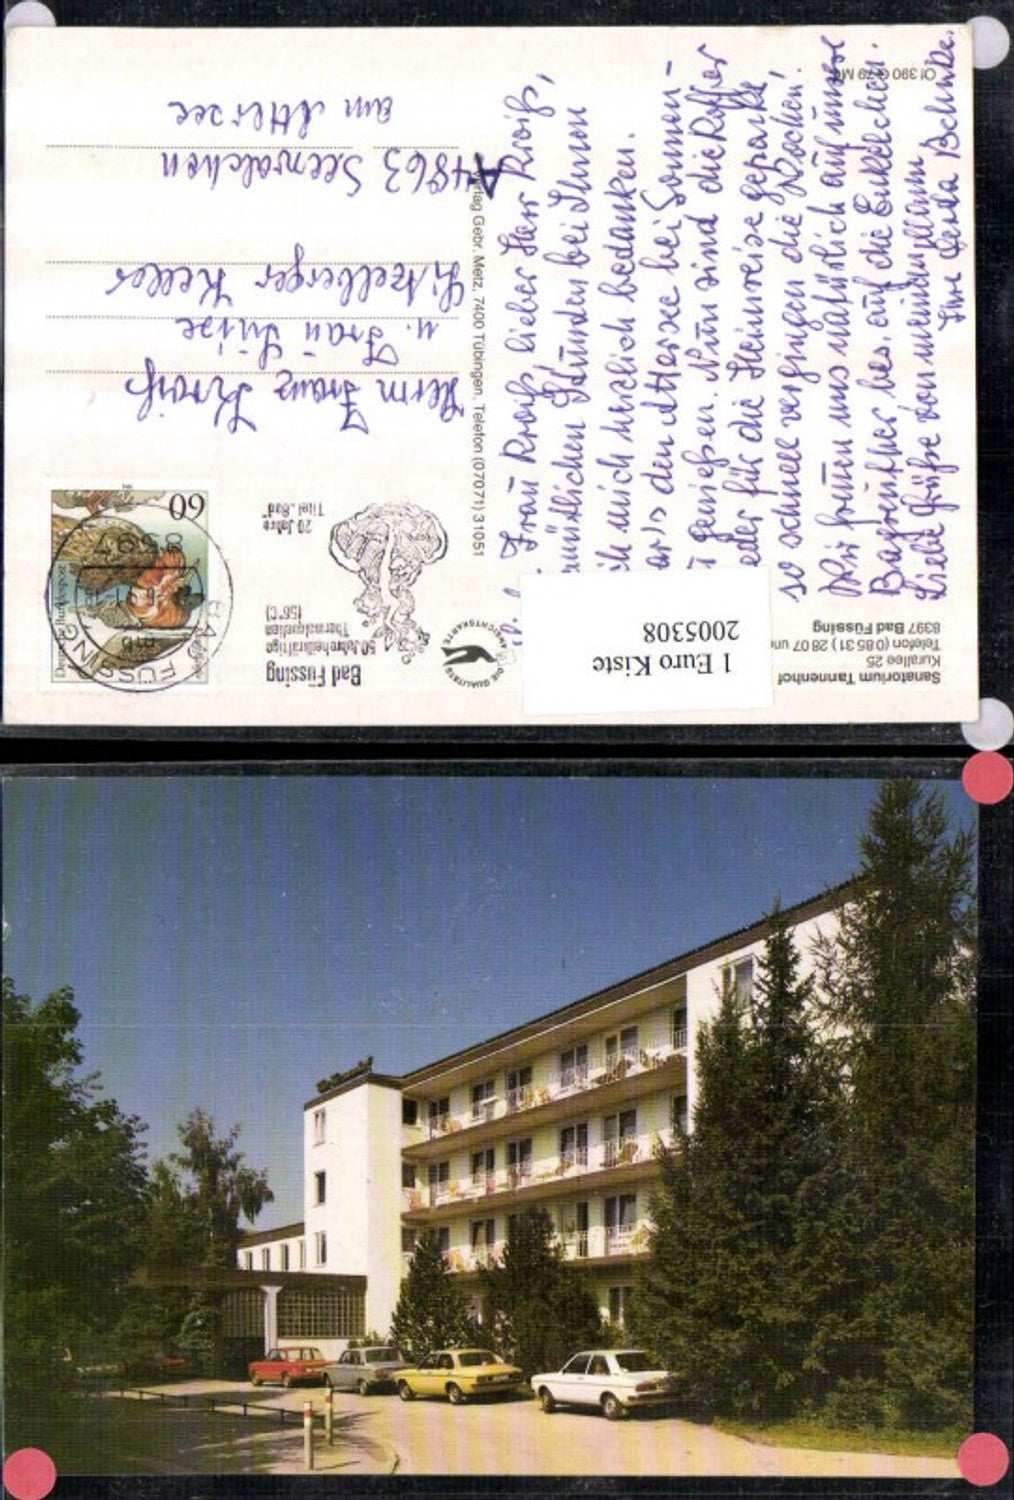 Sanatorium Tannenhof
Kurallee 25
Telefon (0 85 31) 28 07 und
8397 Bad Füssing
1 Euro Kiste
2005308
DIE QUALITÄTS ANSICHTSKARTE
Bad Füssing
50 Jahre heilkräftige
Thermalquellen
(56°C)
20 Jahre
Titel „Bad"
Deutsche Bundespost
60
8397
BAD FÜSSING
Frau Kroiß, lieber Herr Kroiß,
gemütlichen Stunden bei Ihnen
ich mich herzlich bedanken.
war's den Attersee bei Sonnen-
genießen. Nun sind die Koffer
für die Heimreise gepackt,
so schnell vergingen die Wochen.
Wir freuen uns natürlich auf unsere
bes. auf die Enkelchen.
Liebe Grüße von meinem Mann
Ihre Gerda Behnke.
Verlag Gebr. Metz, 7400 Tübingen, Telefon (07071) 31051
Herrn Franz Kroiß
u. Frau Luise
Litzelberger Keller
A 4863 Seewalchen
am Attersee